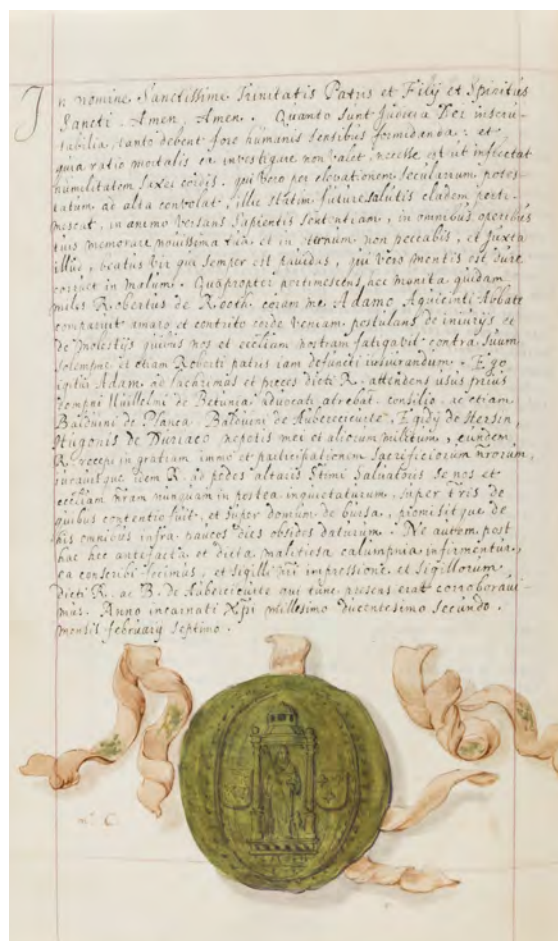 In nomine Sanctissime Trinitatis Patris et Filij et Spiritus
Sancti. Amen, Amen. Quanto sunt Judicia Dei inscru-
tabilia, tanto debent fore humanis sensibus formidanda: et
quia ratio mortalis ea investigare non valet, necesse est ut inflectat
humilitatem cordis. qui vero per elevationem secularium potes-
tatum ad alta convolat, illic statim future salutis cladem perti-
mescat, in animo versans Sapientis sententiam, in omnibus operibus
tuis memorare novissima tua, et in eternum non peccabis, et Juxta
illud, beatus vir qui semper est pavidus, qui vero mentis est dure
corruet in malum. Quapropter pertimescens hec monita quidam
miles Robertus de Rooth. coram me Adamo Aquicinti Abbate
comparuit amaro et contrito corde veniam postulans de iniurijs et
de molestijs quibus nos et eccliam nostram fatigavit contra suum
solempne et etiam Roberti patris iam defuncti iuramendum. Ego
igitur Adam ad lachrimas et preces dicti R. attendens usus prius
dompni Willelmi de Betunia advocati atrebat. consilio. ac etiam
Balduini de Planca. Balduini de Aubercicurte. Egidij de Hersin,
Hugonis de Duriaco nepotis mei et aliorum militum, eundem
R. recepi in gratiam immo et participationem sacrificiorum nrorum,
juravitque idem R. ad pedes altaris Stimi Salvatoris se nos et
eccliam nram nunquam in postea inquietaturum, super tris de
quibus contentio fuit, et super domum de bursa, promisitque de
his omnibus infra paucos dies obsides daturum. Ne autem post
hac hec antefacta et dicta malitiosa calumpnia infirmentur,
ea conscribi fecimus, et sigilli nri impressione et sigillorum
dicti R. ac B. de Aubercicurte qui tunc presens erat corroboravi-
mus. Anno incarnati Xpi millesimo ducentesimo secundo.
mensis february septimo.